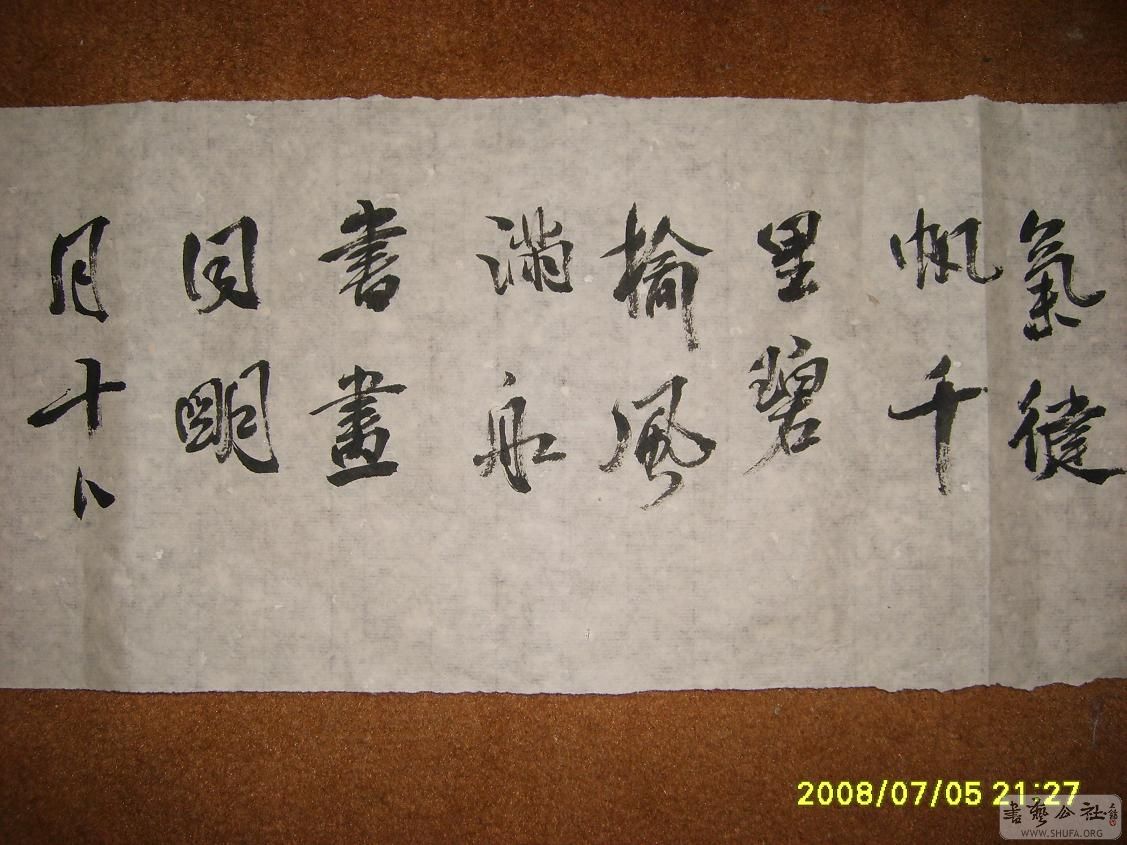 氣健
帆千
里碧
榆風
滿舡
書畫
同明
月十卜
2008/07/05 21:27
書藝公社
WWW.SHUFA.ORG